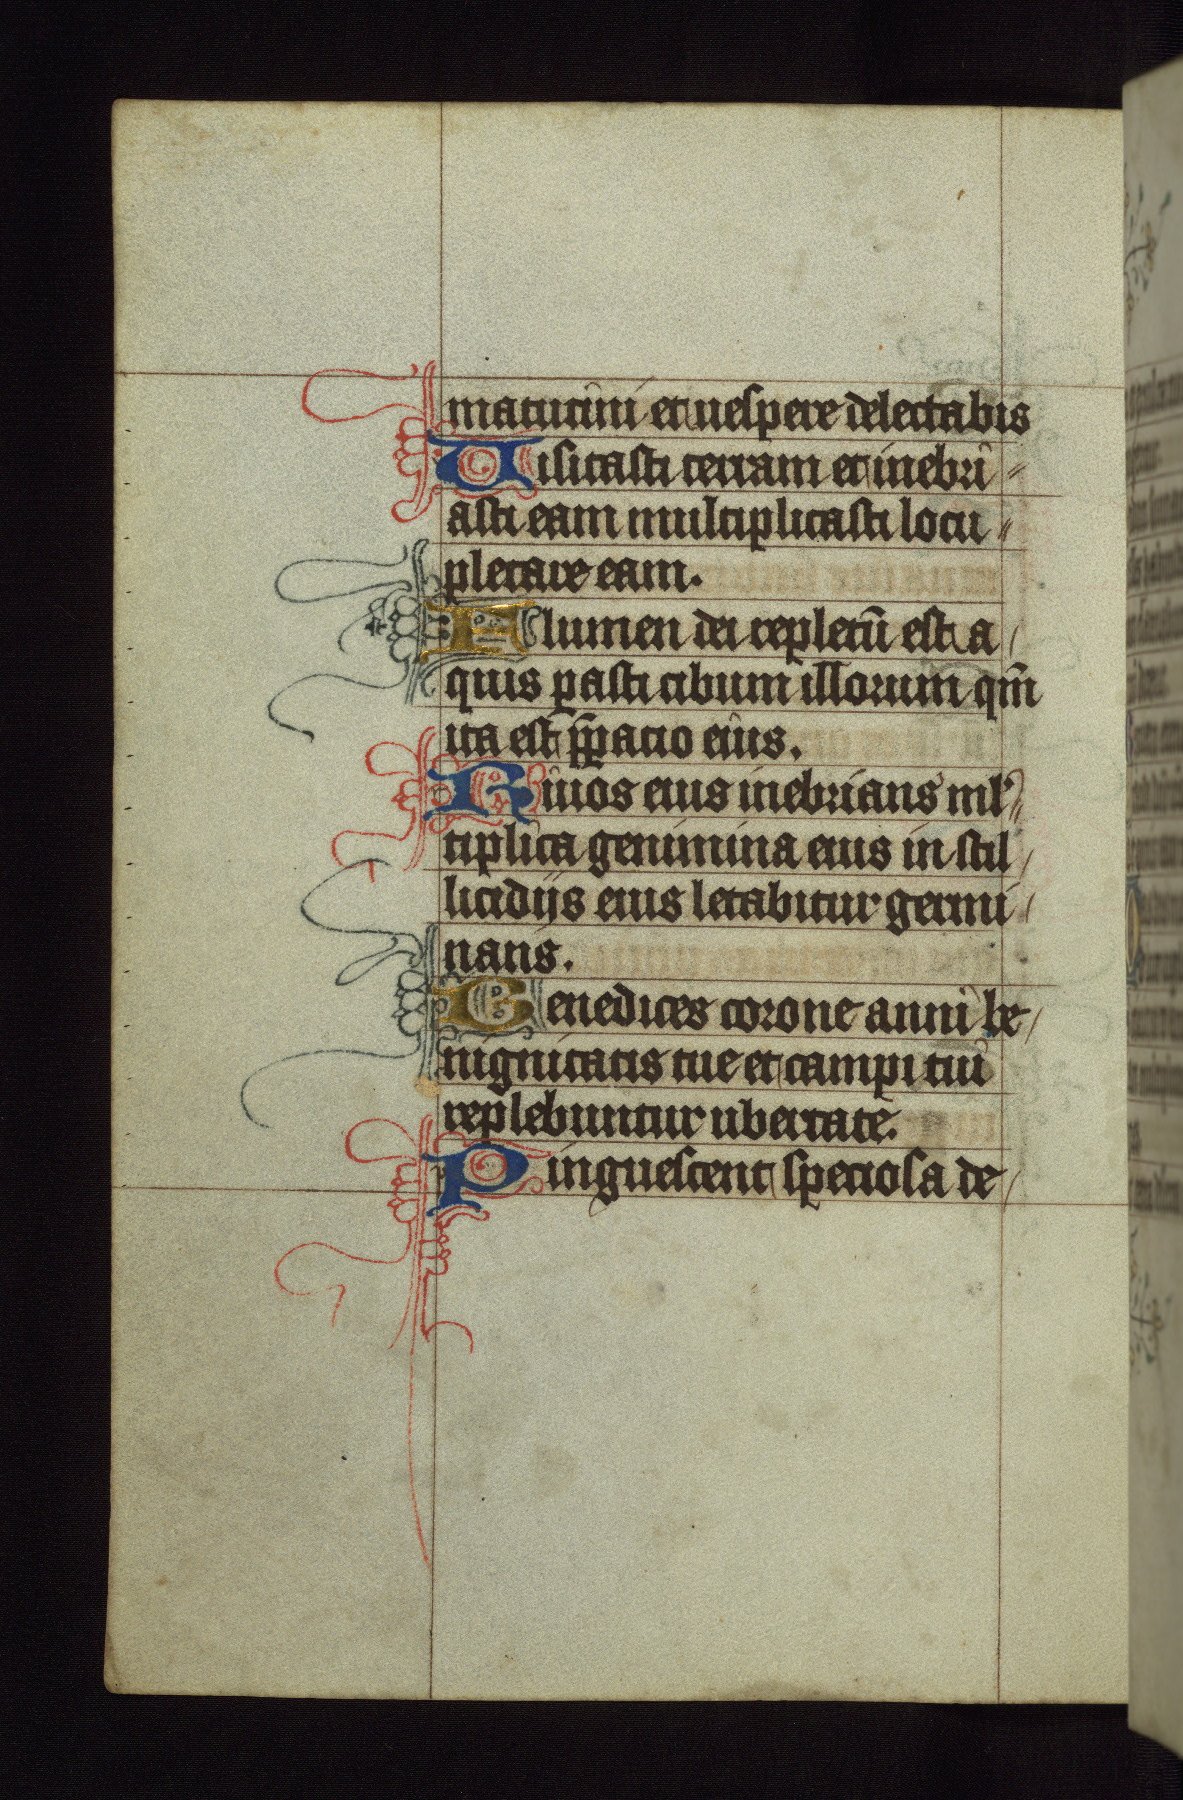 matutini et uespere delectabis
Uisitasti terram et inebri
asti eam multiplicasti locu
pletare eam.
Flumen dei repletū est a
quis pasti cibum illorum qm̄
ita est p̄patio eius.
Riuos eius inebrians ml'
tiplica genimina eius in stil
licidijs eius letabitur germi
nans.
Benedices corone anni be
nignitatis tue et campi tui
replebuntur ubertate.
Pinguescent speciosa de